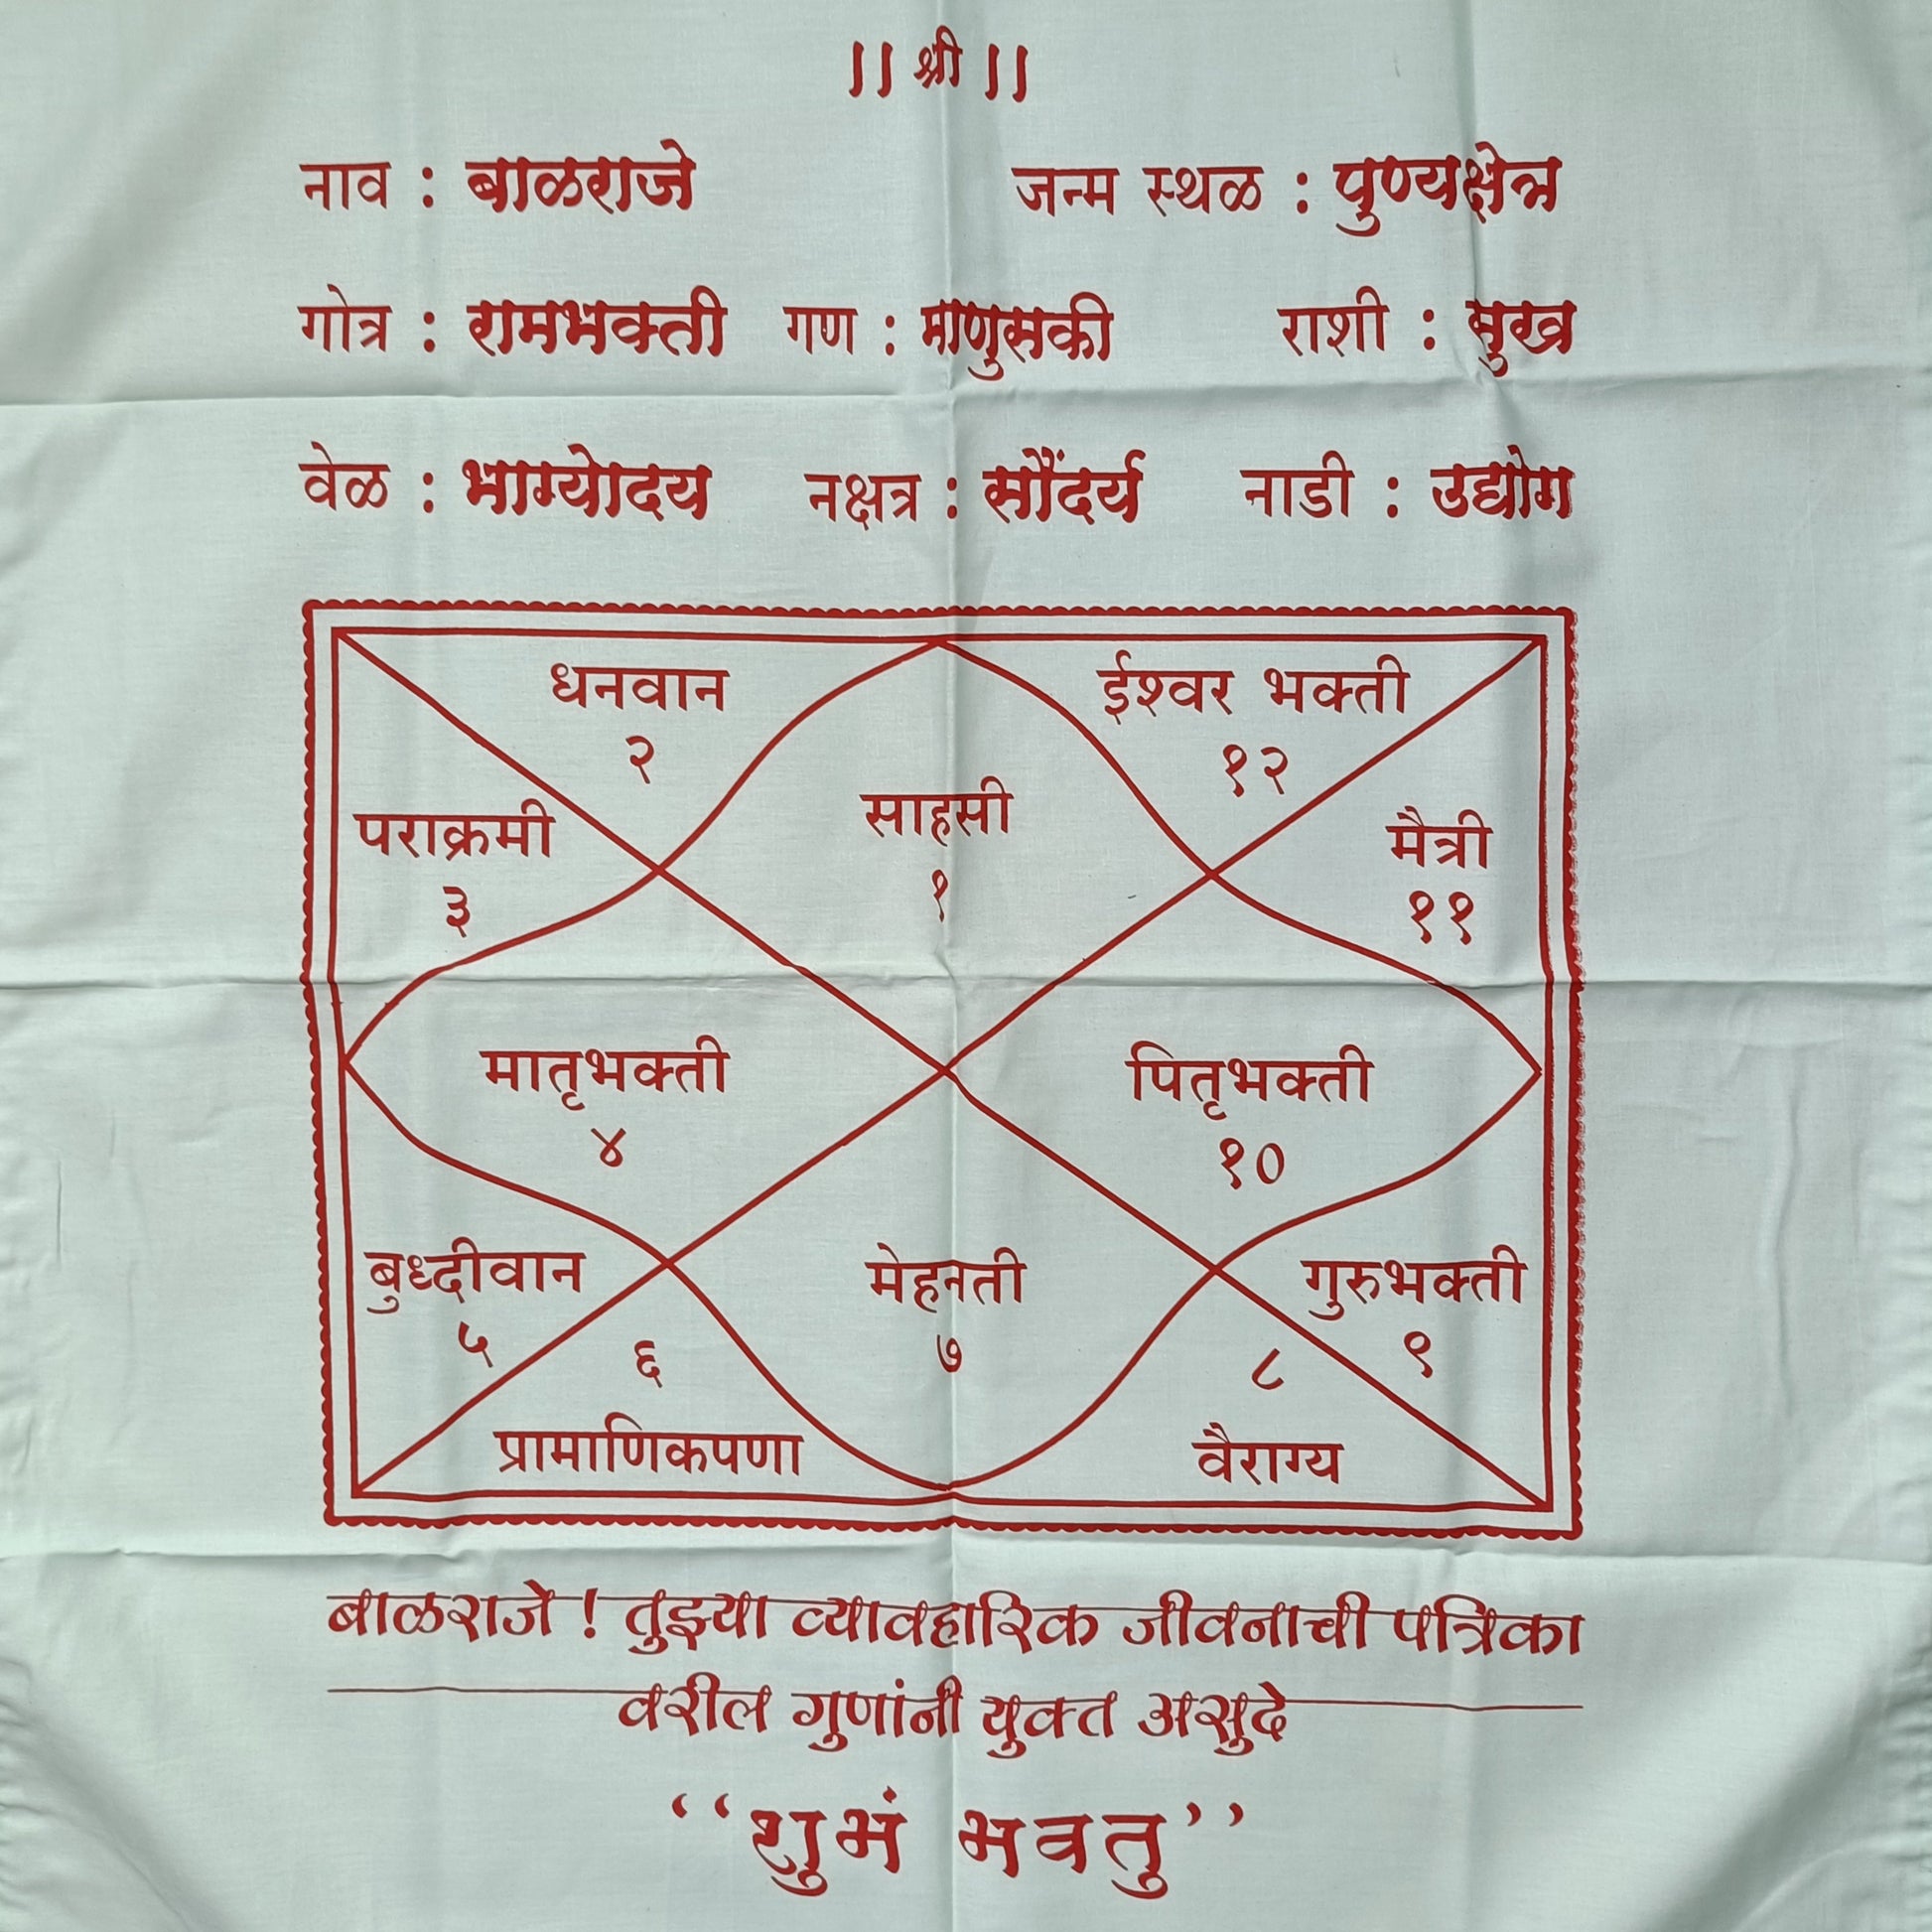 || श्री ||
नाव : बाळराजे जन्म स्थळ : पुण्यक्षेत्र
गोत्र : रामभक्ती गण : माणुसकी राशी : सुख
वेळ : भाग्योदय नक्षत्र : सौंदर्य नाडी : उद्योग
धनवान
२
ईश्वर भक्ती
१२
साहसी
१
पराक्रमी
३
मैत्री
११
मातृभक्ती
४
पितृभक्ती
१०
बुध्दीवान
५
६
प्रामाणिकपणा
मेहनती
७
८
वैराग्य
गुरुभक्ती
९
बाळराजे ! तुझ्या व्यावहारिक जीवनाची पत्रिका
वरील गुणांनी युक्त असुदे
‘‘शुभं भवतु’’